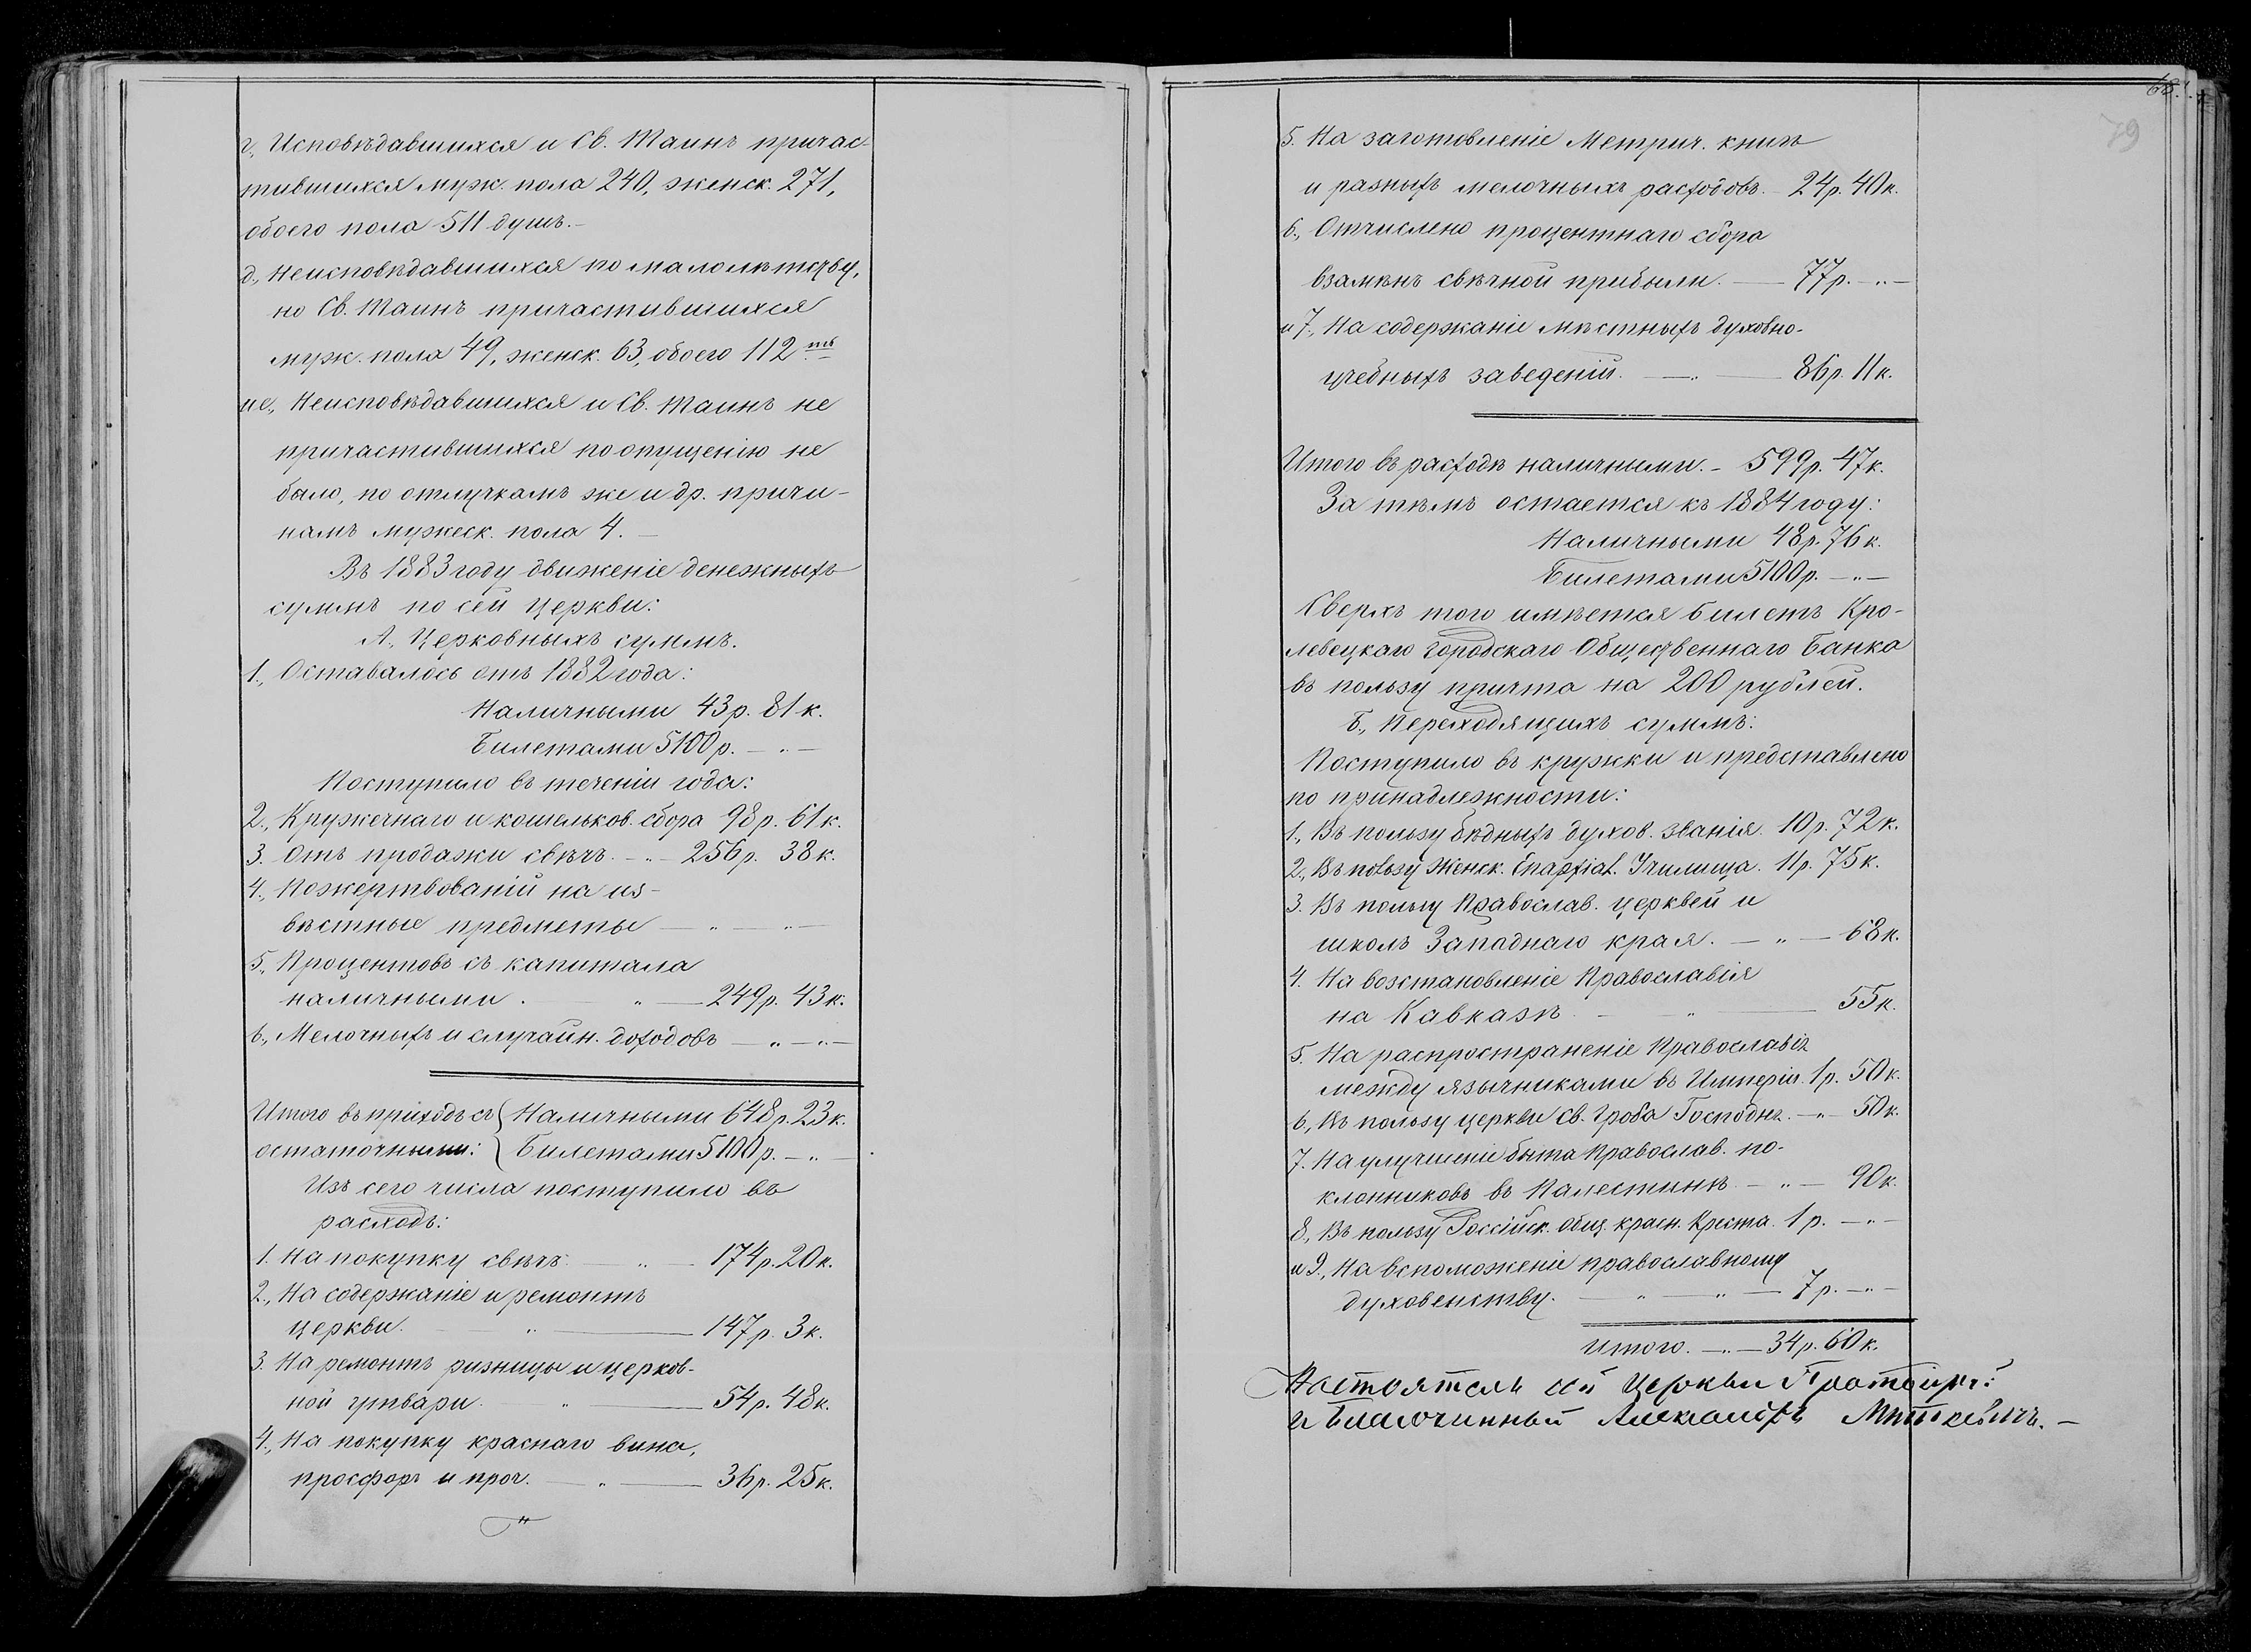 г., Исповѣдавшихся и Св. Таинъ причас-
тившихся муж. пола 240, женск. 271,
обоего пола 511 душъ. –
д., Неисповѣдавшихся по малолѣтству,
но Св. Таинъ причастившихся
муж. пола 49, женск. 63, обоего 112 ть
и е., Неисповѣдавшихся и Св. Таинъ не
причастившихся по опущенію не
было, по отлучкамъ же и др. причи-
намъ мужеск. пола 4. –
Въ 1883 году движеніе денежныхъ
суммъ по сей церкви:
А., Церковныхъ суммъ.
1., Оставалось отъ 1882 года:
Наличными 43 р. 81 к.
Билетами 5100 р. – „ –
Поступило въ теченіи года:
2., Кружечнаго и кошельков. сбора 98 р. 61 к.
3. Отъ продажи свѣчъ. – „ – 256 р. 38 к.
4., Пожертвованій на из-
вѣстные предметы – „ – „ –
5., Процентовъ съ капитала
наличными. „ – 249 р. 43 к.
6., Мелочныхъ и случайн. доходовъ – „ – „ –
Итого въ приходѣ съ { Наличными 648 р. 23 к.
остаточными: { Билетами 5100 р. – „ –
Изъ сего числа поступило въ
расходъ:
1. На покупку свѣчъ. – „ – 174 р. 20 к.
2., На содержаніе и ремонтъ
церкви. – „ – 147 р. 3 к.
3. На ремонтъ ризницы и церков-
ной утвари. „ – 54 р. 48 к.
4., На покупку краснаго вина,
просфоръ и проч. – „ – 36 р. 25 к.
68.
79
5. На заготовленіе Метрич. книгъ
и разныхъ мелочныхъ расходовъ. 24 р. 40 к.
6., Отчислено процентнаго сбора
взамѣнъ свѣчной прибыли. – 77 р. – „ –
и 7., На содержаніе мѣстныхъ духовно-
учебныхъ заведеній. – „ – 86 р. 11 к.
Итого въ расходѣ наличными. – 599 р. 47 к.
За тѣмъ остается къ 1884 году:
Наличными 48 р. 76 к.
Билетами 5100 р. – „ –
Сверхъ того имѣется билетъ Кро-
левецкаго Городскаго Общественнаго Банка
въ пользу причта на 200 рублей.
Б., Переходящихъ суммъ:
Поступило въ кружки и представлено
по принадлежности:
1., Въ пользу бѣдныхъ духов. званія. 10 р. 72 к.
2., Въ пользу Женск. Епархіал. Училища. 11 р. 75 к.
3. Въ пользу Православ. церквей и
школъ Западнаго края. – „ – 68 к.
4. На возстановленіе Православія
на Кавказѣ. – „ – 55 к.
5. На распространеніе Православія
между язычниками въ Имперіи. 1 р. 50 к.
6., Въ пользу церкви св. Гроба Господня. – „ – 50 к.
7. На улучшеніе быта Православ. по-
клонниковъ въ Палестинѣ – „ – 90 к.
8., Въ пользу Россійск. общ. красн. Креста. 1 р. – „ –
и 9., На вспоможеніе православному
духовенству. – „ – „ – 7 р. – „ –
Итого. – „ – 34 р. 60 к.
Настоятель сей Церкви Протоіерей
и Благочинный Александръ Миткевичъ. –